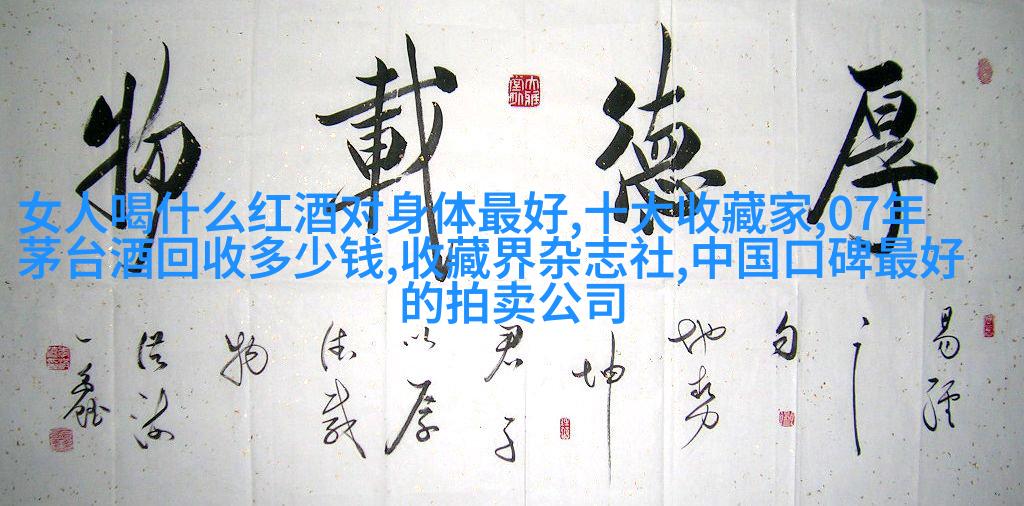 厚德載物
女人喝什么红酒对身体最好,十大收藏家,07年
茅台酒回收多少钱,收藏界杂志社,中国口碑最好
的拍卖公司
易經
之
句
地势
坤
君子
以厚
德载
物